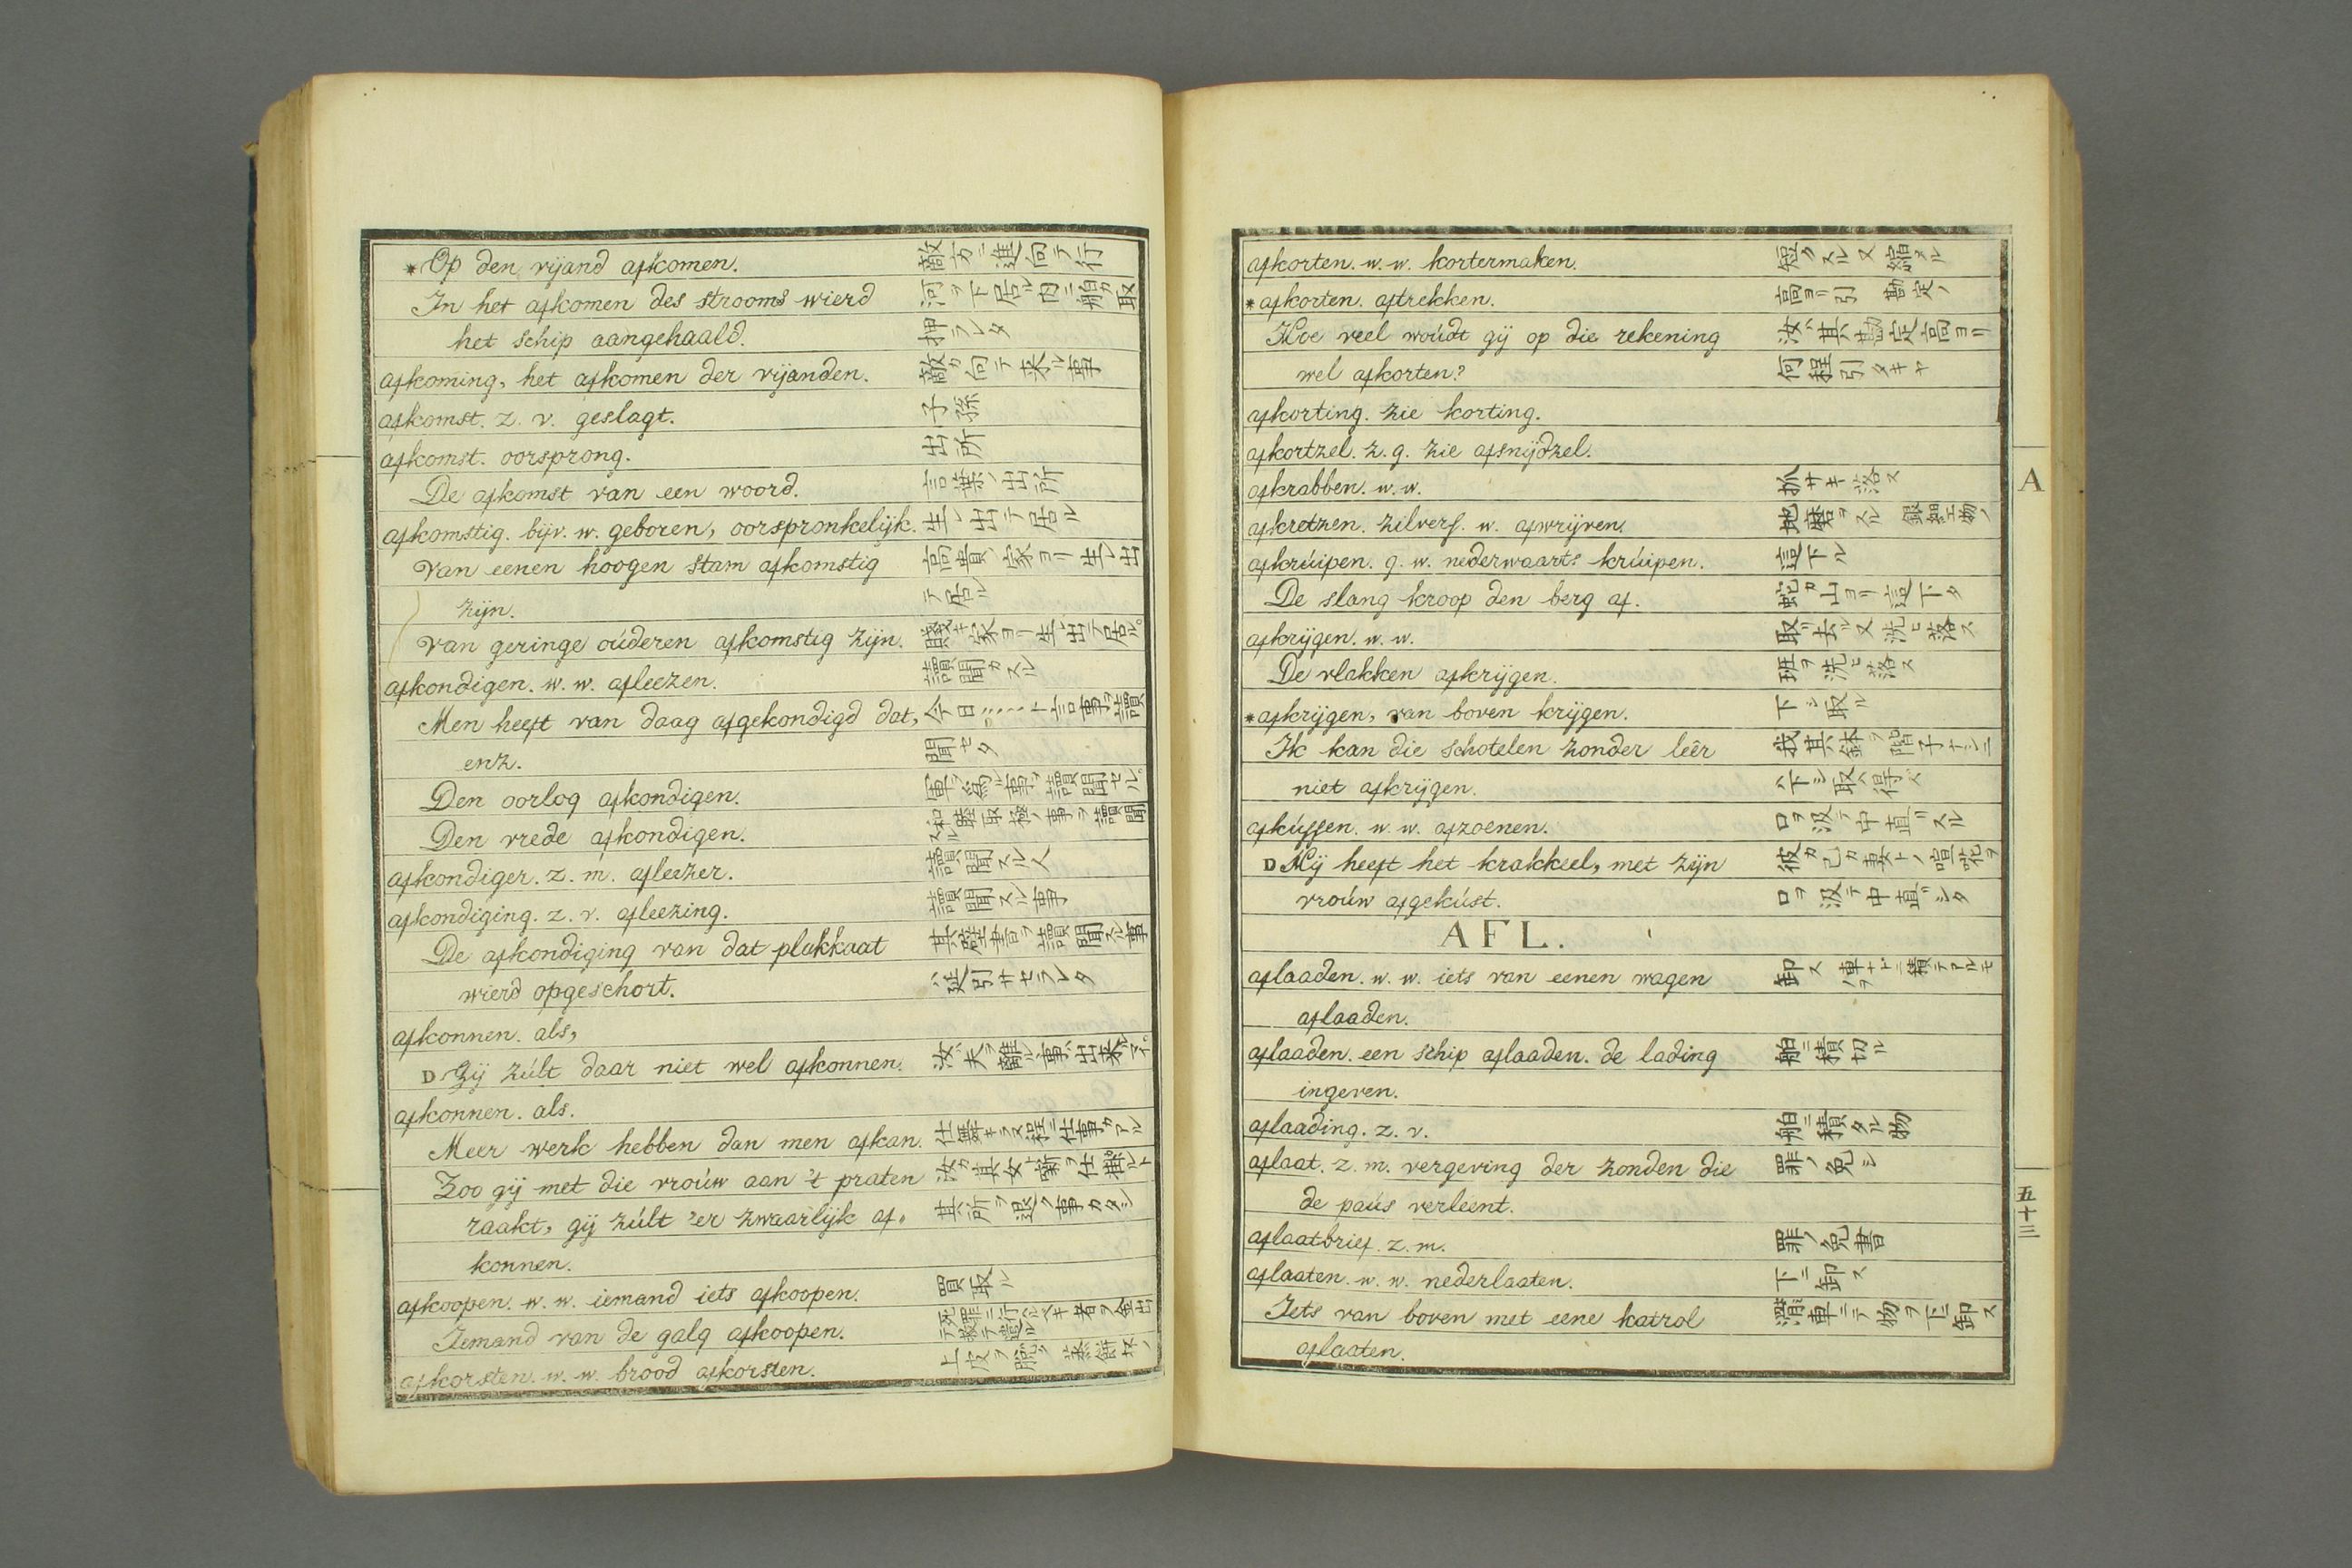 *Op den vijand afkomen. 敵方ニ進向テ行
In het afkomen des strooms wierd 河ヲ下居ル内ニ舶ガ取
het schip aangehaald. 押ラレタ
afkoming, het afkomen der vijanden. 敵ガ向テ来ル事
afkomst. z. v. geslagt. 子孫
afkomst. oorsprong. 出所
De afkomst van een woord. 言葉ノ出所
afkomstig. bijv. w. geboren, oorspronkelijk. 生レ出テ居ル
Van eenen hoogen stam afkomstig 高貴ノ家ヨリ生レ出
zijn. テ居ル
Van geringe oúderen afkomstig zijn. 賤キ家ヨリ生レ出テ居ル。
afkondigen. w. w. afleezen. 讀聞カスル
Men heeft van daag afgekondigd dat, 今日……ト言事ヲ讀
enz. 聞セタ
Den oorlog afkondigen. 軍ヲ為ル事ヲ讀聞セル。
Den vrede afkondigen. 和睦取極ノ事ヲ讀聞スル
afkondiger. z. m. afleezer. 讀聞スル人
afkondiging. z. v. afleezing. 讀聞スル事
De afkondiging van dat plakkaat 其壁書ヲ讀聞スル事
wierd opgeschort. ハ延引サセラレタ
afkonnen. als,
D Gij zúlt daar niet wel afkonnen. 汝ハ夫ヲ離ルル事ハ出来ルマイ。
afkonnen. als.
Meer werk hebben dan men afkan. 仕舞キラヌ程ニ仕事ガアル
Zoo gij met die vroúw aan 't praten 汝ガ其女ト噺ヲ仕掛ルト
raakt, gij zúlt 'er zwaarlijk af„ 其所ヲ退ク事カタシ
konnen.
afkoopen. w. w. iemand iets afkoopen. 買取ル
Iemand van de galg afkoopen. 死罪ニ行ハルベキ者ヲ金出
afkorsten. w. w. brood afkorsten. 上皮ヲ脱ク 蒸餅杯ノ
afkorten. w. w. kortermaken. 短クスル 又 縮メル
*afkorten. aftrekken. 高ヨリ引 勘定ノ
Hoe veel woúdt gij op die rekening 汝ハ其勘定高ヨリ
wel afkorten? 何程引タキヤ
afkorting. zie korting.
afkortzel. z. g. zie afsnijdzel.
afkrabben. w. w. 抓サキ落ス
afkretzen. zilvers. w. afwrijven. 地磨ヲスル 銀細工物ノ
afkrúipen. g. w. nederwaarts krúipen. 這下ル
De slang kroop den berg af. 蛇ガ山ヨリ這下タ
afkrijgen. w. w. 取リ去ル 又 洗ヒ落ス
De vlakken afkrijgen. 班ヲ洗ヒ落ス
*afkrijgen, van boven krijgen. 下シ取ル
Ik kan die schotelen zonder leêr 我其鉢ヲ階子ナシニ
niet afkrijgen. ハ下シ取ヘ得ズ
afkússen. w. w. afzoenen. 口ヲ汲テ中直リスル
D Hij heeft het krakkeel, met zijn 彼ガ己ガ妻トノ喧花ヲ
vroúw afgekúst. 口ヲ汲テ中直リシタ
AFL.
aflaaden. w. w. iets van eenen wagen 卸ス 車ナドニ積テアルモノヲ
aflaaden.
aflaaden. een schip aflaaden. de lading 舶ニ積切ル
ingeven.
aflaading. z. v. 舶ニ積タル物
aflaat. z. m. vergeving der zonden die 罪ノ免シ
de paús verleent.
aflaatbrief. z. m. 罪ノ免書
aflaaten. w. w. nederlaaten. 下ニ卸ス
Iets van boven met eene katrol 滑車ニテ物ヲ下ニ卸ス
aflaaten.
A
五十三